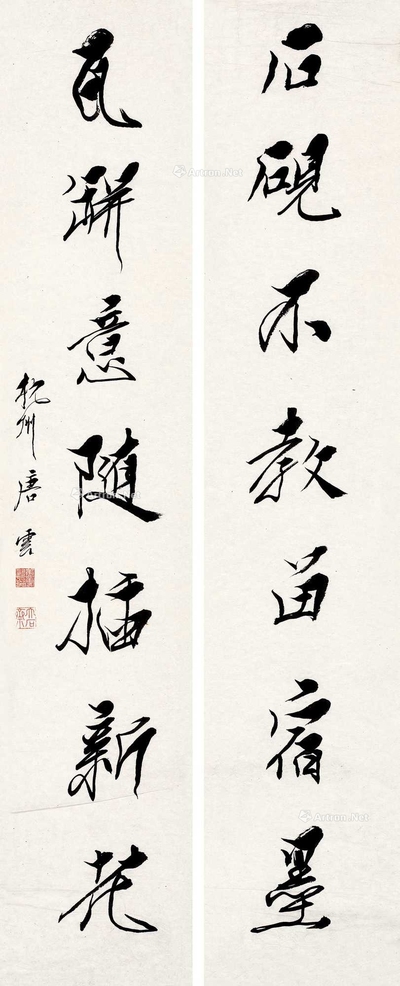 石砚不教留宿墨
瓦缾意随插新花
杭州唐雲
Artron.Net
Artron.Net